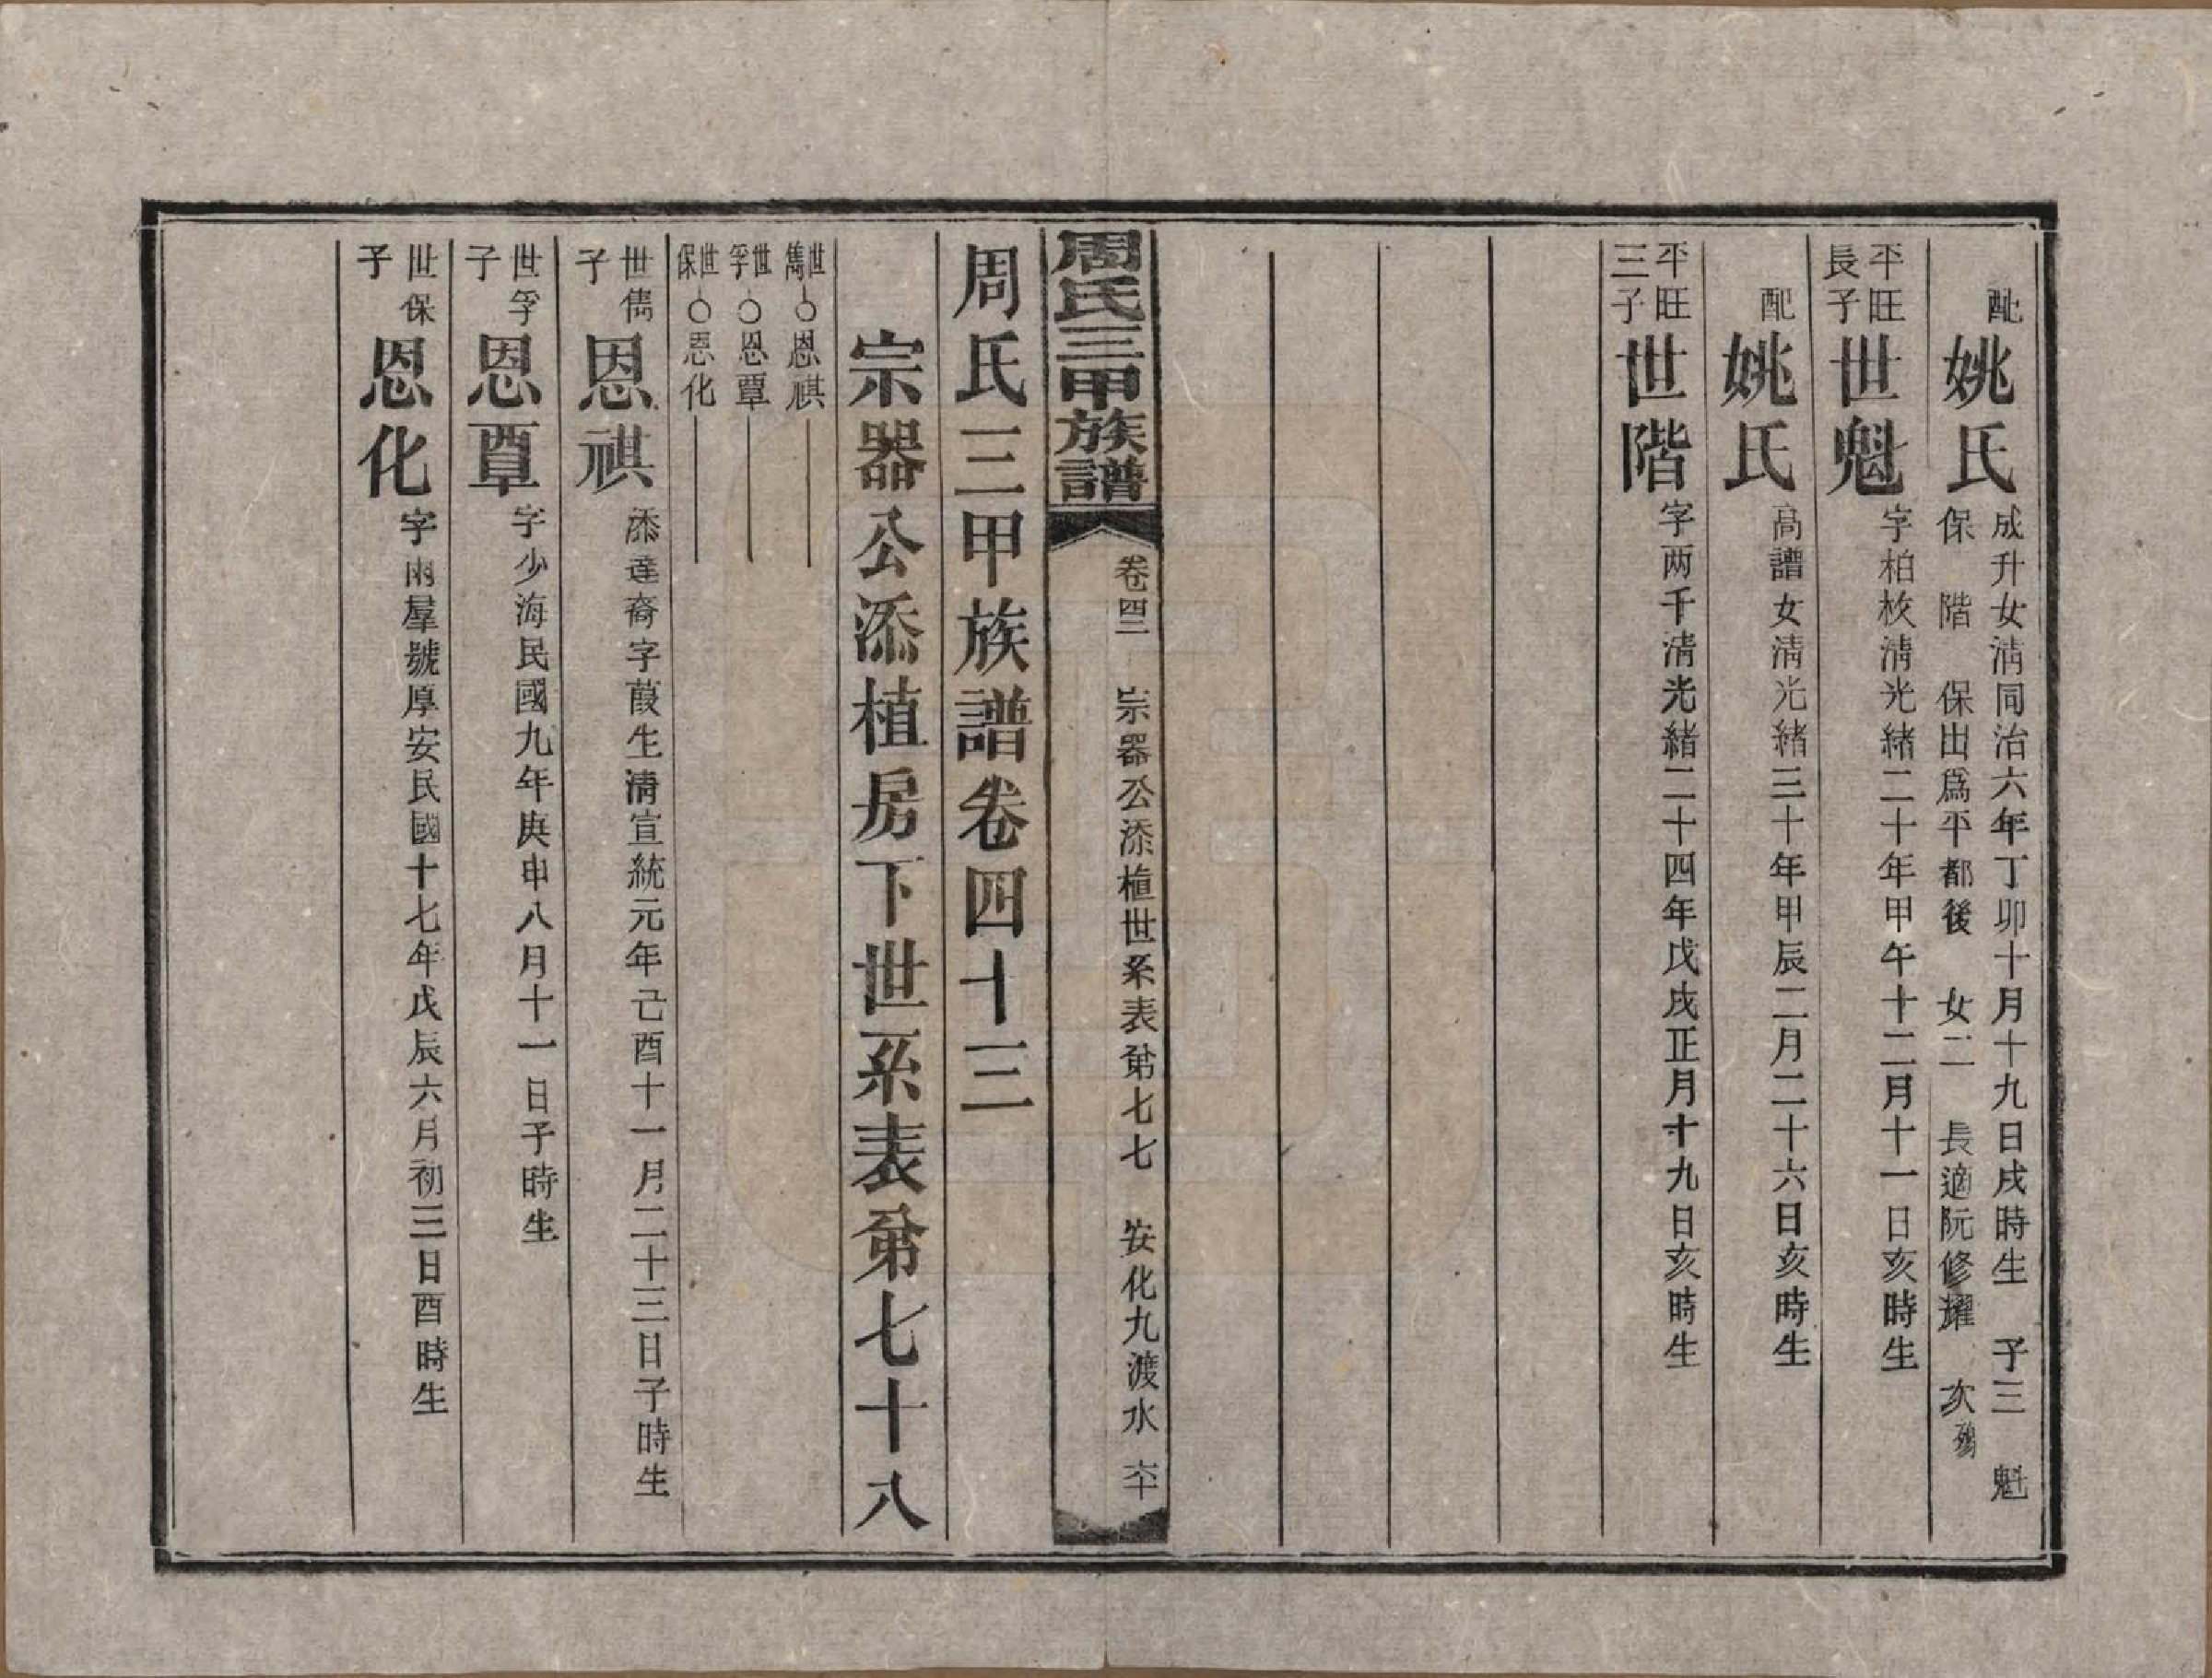 配姚氏成升女淸同治六年丁卯十月十九日戌時生 子三 魁
保 階 保出爲平都後 女二 長適阮修耀 次殤
平旺長子世魁字柏枚淸光緒二十年甲午十二月十一日亥時生
配姚氏高譜女淸光緒三十年甲辰二月二十六日亥時生
平旺三子世階字两千淸光緒二十四年戊戌正月十九日亥時生
周氏三甲族譜 卷四二 宗器公添植世系表弟七七 安化九渡水 六十
周氏三甲族譜卷四十三
宗器公添植房下世系表弟七十八
世雋○恩祺
世孚○恩覃
世保○恩化
世雋子恩祺添達裔字葭生淸宣統元年己酉十一月二十三日子時生
世孚子恩覃字少海民國九年庚申八月十一日子時生
世保子恩化字雨羣號厚安民國十七年戊辰六月初三日酉時生